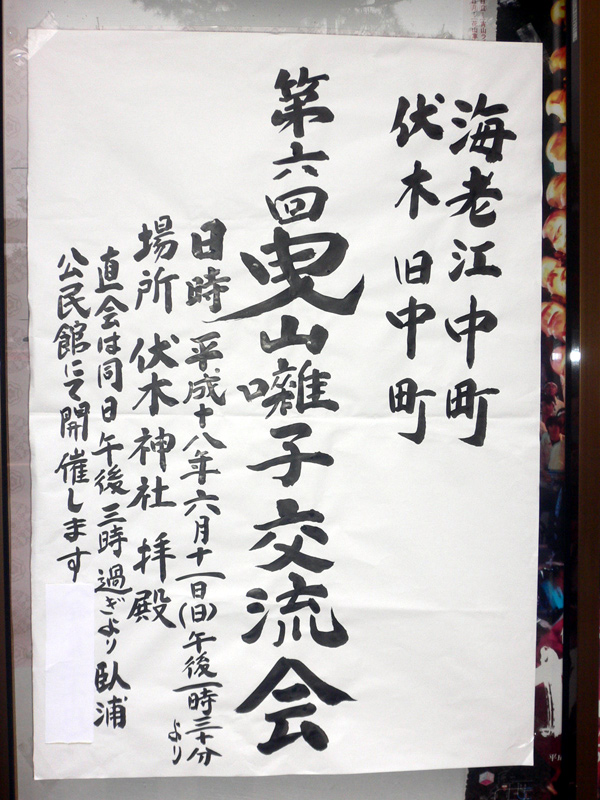 海老江中町
伏木旧中町
第六回曳山囃子交流会
日時 平成十八年六月十一日(日)午後一時三十分より
場所 伏木神社 拝殿
直会は同日午後三時過ぎより臥浦
公民館にて開催します